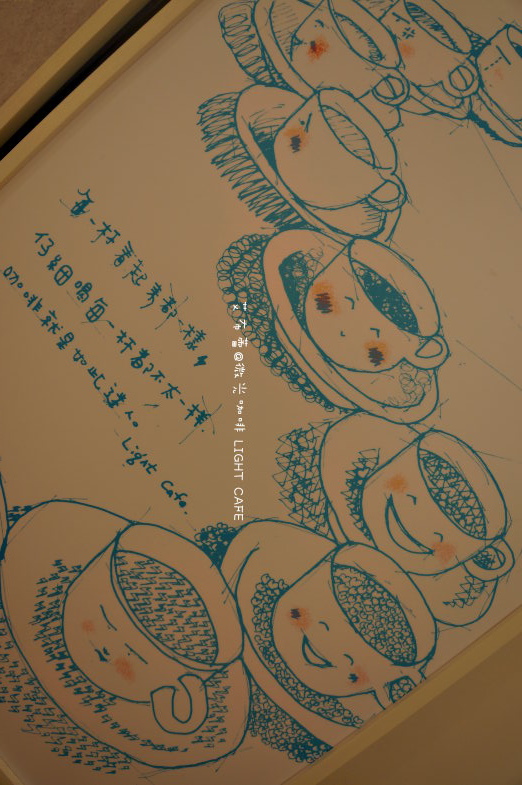 每一杯看起來都一樣
仔細喝每一杯都不太一樣.
咖啡就是如此迷人。
Light Cafe.
@微光咖啡 LIGHT CAFE